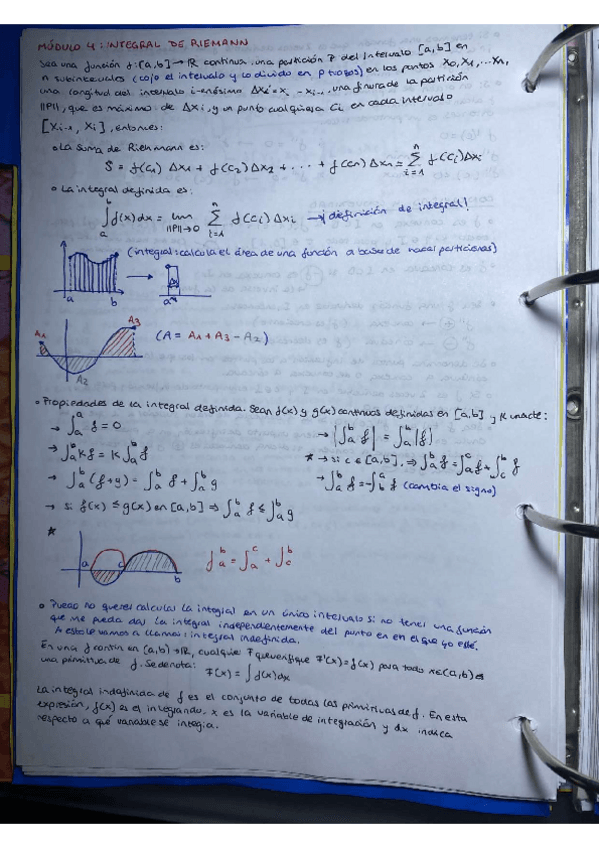 MÓDULO 4: INTEGRAL DE RIEMANN
Sea una función f: [a,b] → ℝ continua, una partición P del Intervalo [a,b] en
n subintervalos (cojo el intervalo y lo divido en p trozos) en los puntos x₀, x₁, ... xₙ,
una longitud del intervalo i-enésimo Δxi = xi - xi-1, una finura de la partición
||P||, que es máximo de Δxi, y un punto cualquiera Ci en cada intervalo
[xi-1, xi], entonces:
• La suma de Riehmann es:
S = f(C1) Δx1 + f(C2) Δx2 + ... + f(Cn) Δxn = Σ f(Ci) Δxi
n
i=1
• La integral definida es:
∫ab f(x)dx = lim ||P||→0 Σ i=1 n f(Ci) Δxi → ¡definición de integral!
(integral: calcula el área de una función a base de hacer particiones)
a b a
A1 A3
(A = A1 + A3 - A2)
A2
• Propiedades de la integral definida. Sean f(x) y g(x) continuas definidas en [a,b] y K una cte:
→ ∫aa f = 0
→ |∫ab f| = ∫ab |f|
→ ∫ab Kf = K ∫ab f
* → si c ∈ [a,b], ⇒ ∫ab f = ∫ac f + ∫cb f
→ ∫ab (f+g) = ∫ab f + ∫ab g
→ ∫ab f = -∫ba f (cambia el signo)
→ si f(x) ≤ g(x) en [a,b] ⇒ ∫ab f ≤ ∫ab g
*
a c b
∫ab = ∫ac + ∫cb
• Puedo no querer calcular la integral en un único intervalo si no tener una función
que me pueda dar la integral independientemente del punto en en el que yo esté.
A esto le vamos a llamar: integral indefinida.
En una f contin en (a,b) → ℝ, cualquier F que verifique F'(x) = f(x) para todo x∈(a,b) es
una primitiva de f. Se denota: F(x) = ∫f(x)dx
La integral indefinida de f es el conjunto de todas las primitivas de f. En esta
expresión, f(x) es el integrando, x es la variable de integración y dx indica
respecto a qué variable se integra.